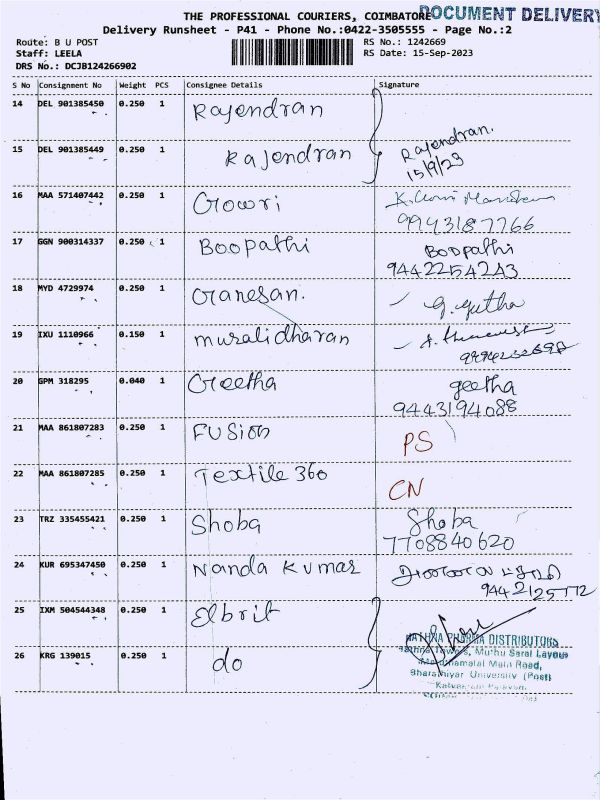 THE PROFESSIONAL COURIERS, COIMBATORE
DOCUMENT DELIVERY
Delivery Runsheet - P41 - Phone No.:0422-3505555 - Page No.:2
Route: B U POST RS No.: 1242669
Staff: LEELA RS Date: 15-Sep-2023
DRS No.: DCJB124266902
S No Consignment No Weight PCS Consignee Details Signature
14 DEL 901385450 0.250 1 Rajendran
15 DEL 901385449 0.250 1 Rajendran Rajendran.
15/9/23
16 MAA 571407442 0.250 1 Gowri
9943187766
17 GGN 900314337 0.250 1 Boopathi Boopathi
9442254243
18 MYD 4729974 0.250 1 Ganesan. G. Gutha
19 IXU 1110966 0.150 1 muralidharan
20 GPM 318295 0.040 1 Geetha geetha
9443194088
21 MAA 861807283 0.250 1 FUSION PS
22 MAA 861807285 0.250 1 Textile 360 CN
23 TRZ 335455421 0.250 1 Shoba Shoba
7708840620
24 KUR 695347450 0.250 1 Nanda Kumar
9442125772
25 IXM 504544348 0.250 1 Elbrit
PHARMA DISTRIBUTORS
Towers, Muthu Saral Layout
26 KRG 139015 0.250 1 do
Main Road,
Bharathiyar University (Post)